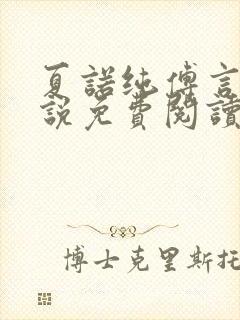 夏諾纯傅言
說免費閱讀
博士克里斯托